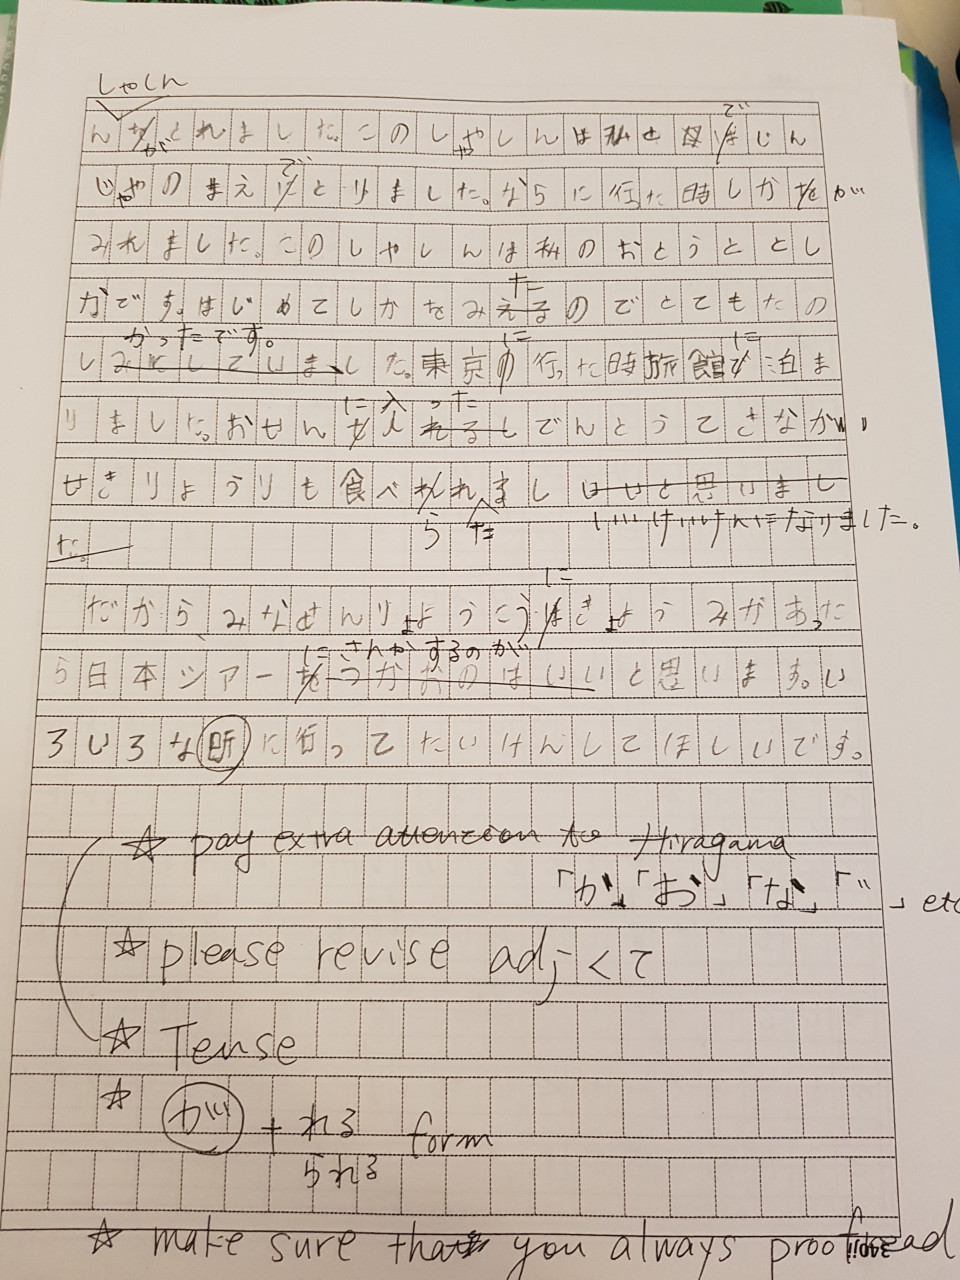 しゃしん
で
んをとれました。このしゃしんは私と母はじん
が や
で
じゃのまえにとりました。ならに行た時しかを が
みれました。このしゃしんは私のおとうととし
た
かです。はじめてしかをみえるのでとてもたの
かったです。 に に
しみにしていました。東京の行った時旅館で泊ま
に入った
りました。おせんを入れるしでんとうてきなかい
せきりょうりも食べれれましはいと思いまし
ら た いいけいけんになりました。
た。
に
だからみなせんりょようこうはきょようみがあった
にさんかするのが
ら日本ツアーをつかおのはいいと思います。い
ろいろな所に行ってたいけんしてほしいです。
☆ pay extra attention to Hiragama
「か」「お」「な」「゛」etc
☆ please revise adj-くて
☆ Tense
☆ が + れる form
られる
☆ make sure that you always proofread